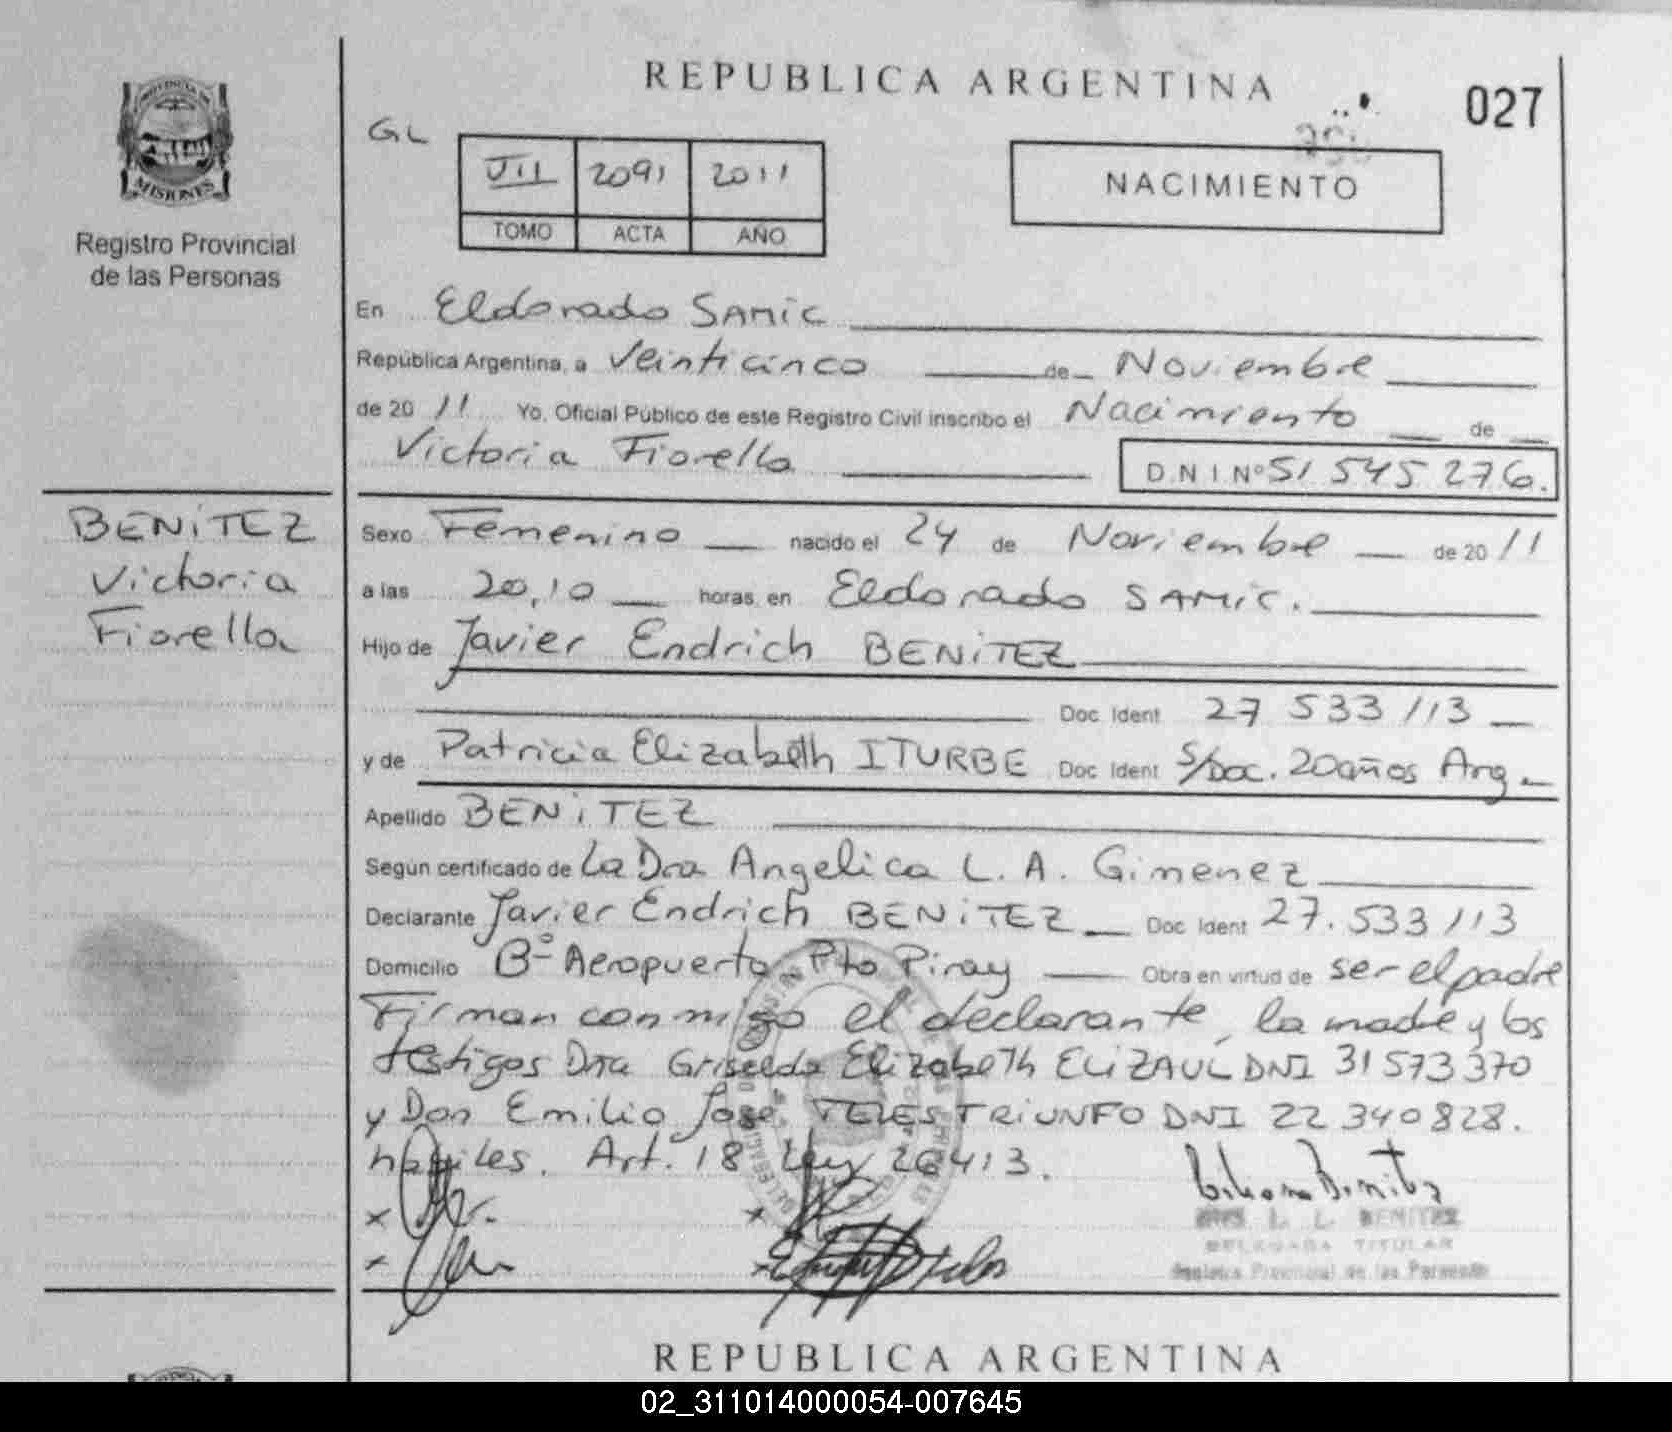 REPUBLICA ARGENTINA
027
GL
VII 2091 2011
TOMO ACTA AÑO
NACIMIENTO
MISIONES
Registro Provincial
de las Personas
En Eldorado SAMIC
República Argentina, a Veinticinco de Noviembre
de 20 11 Yo, Oficial Público de este Registro Civil inscribo el Nacimiento de
Victoria Fiorella D.N.I Nº 51 545 276.
BENITEZ
Victoria
Fiorella
Sexo Femenino nacido el 24 de Noviembre de 20 11
a las 20,10 horas, en Eldorado SAMIC.
Hijo de Javier Endrich BENITEZ
Doc. Ident. 27 533 113
y de Patricia Elizabeth ITURBE Doc. Ident. S/Doc. 20años Arg.
Apellido BENITEZ
Según certificado de La Dra Angelica L. A. Gimenez
Declarante Javier Endrich BENITEZ Doc. Ident. 27.533113
Domicilio Bº Aeropuerto Pto Piray Obra en virtud de ser el padre
Firman conmigo el declarante, la madre y los
testigos Dña Griselda Elizabeth ELIZAUL DNI 31573370
y Don Emilio Jose TELES TRIUNFO DNI 22 340828.
habiles. Art. 18 Ley 26413.
L. L. BENITEZ
DELEGADA TITULAR
Registro Provincial de las Personas
REPUBLICA ARGENTINA
02_311014000054-007645